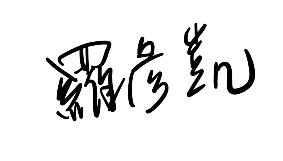 羅彥凱